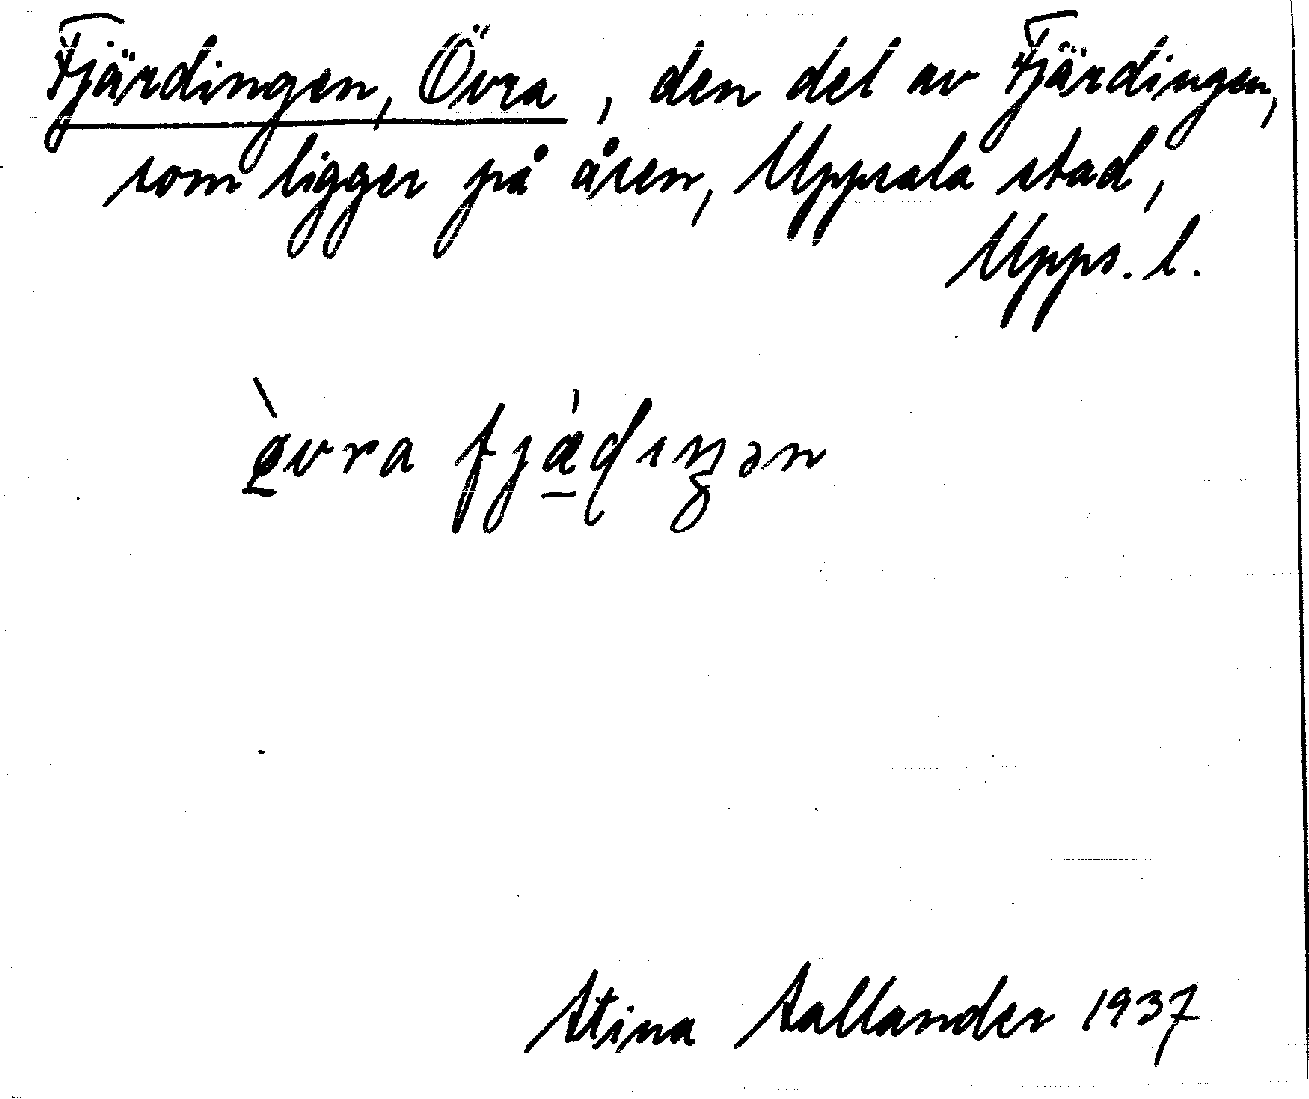 Fjärdingen, Övra, den del av Fjärdingen,
som ligger på åsen, Uppsala stad,
Upps. l.
Stina Sallander 1937